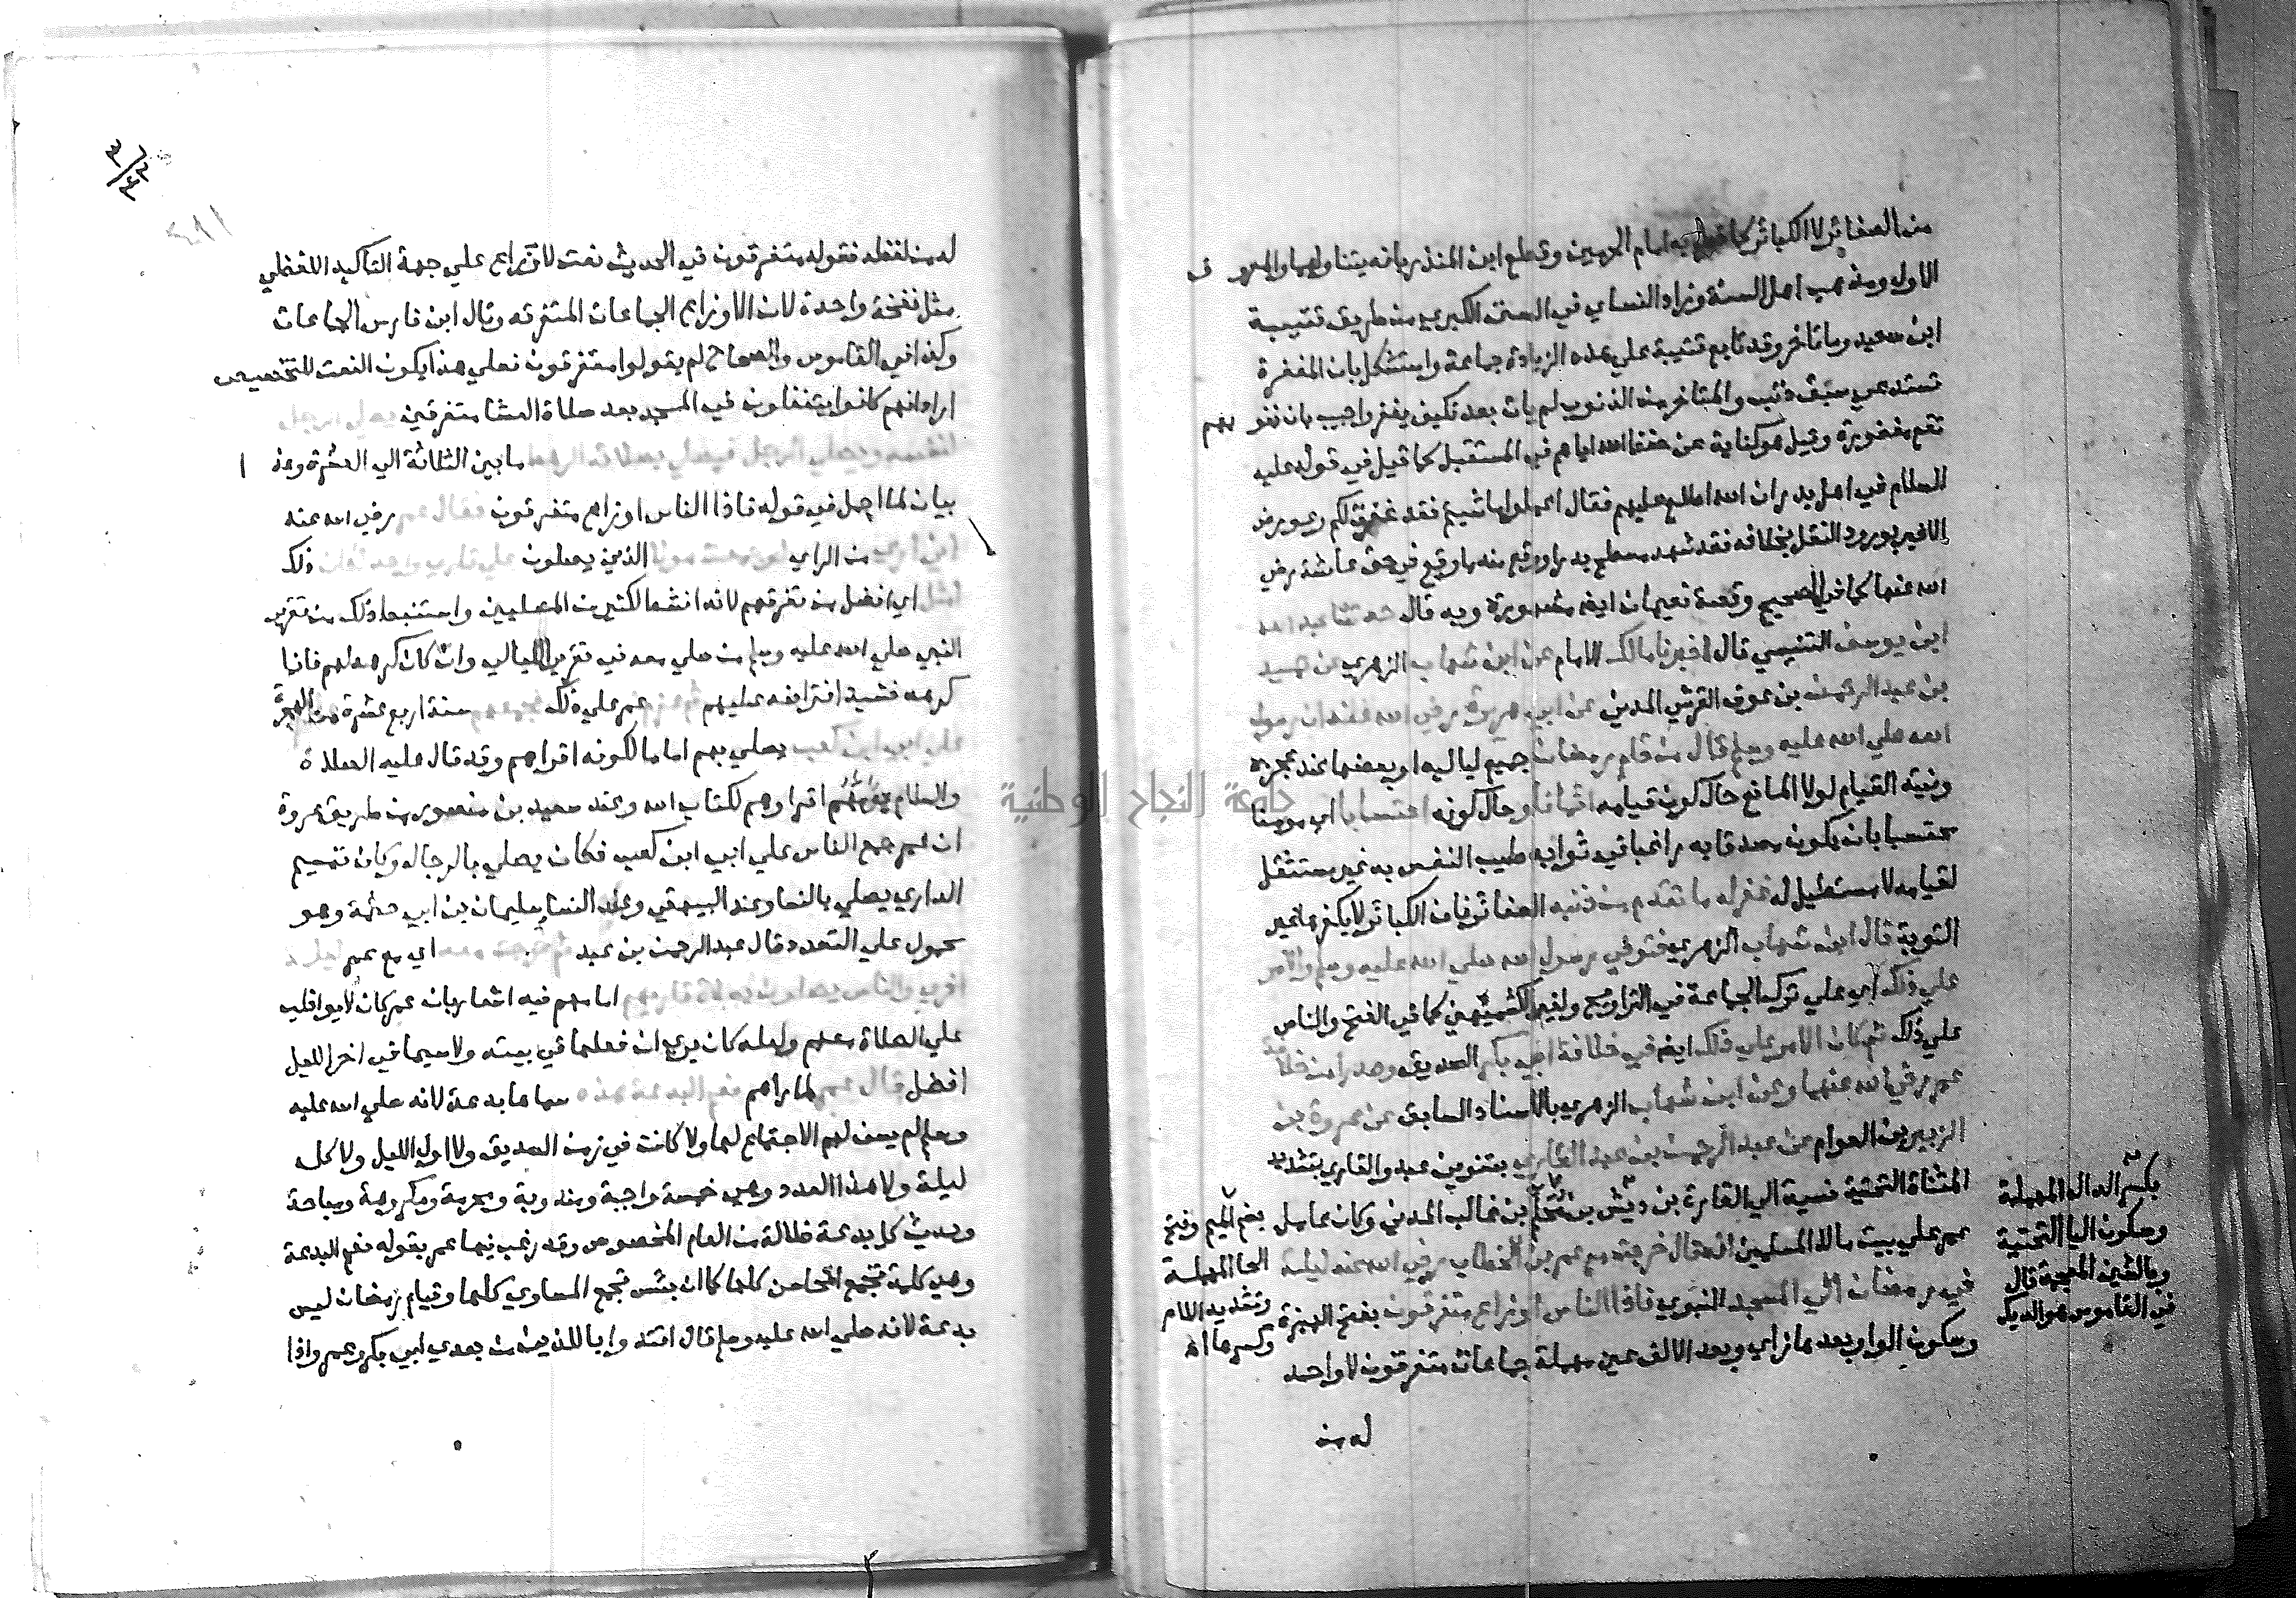 من الصغائر لا الكبائر كما قطع به امام الحرمين وقطع ابن المنذر بانه يتناولهما والمعروف
الاول ومذهب اهل السنة وزاد النساي في السنن الكبري من طريق قتيبة
ابن سعيد وما تاخر وقد تابع قتيبة علي هذه الزيادة جماعة واستشكل بان المغفرة
تستدعي سبق ذنب والمتاخر من الذنوب لم يات بعد فكيف يغفر واجيب بان ذنوبهم
تقع مغفورة وقيل هو كناية عن حفظ الله اياهم في المستقبل كما قيل في قوله عليه
السلام في اهل بدر ان الله اطلع عليهم فقال اعملوا ما شيتم فقد غفرت لكم وعورض
الاخير بورود النقل بخلافه فقد شهد مسطح بدرا ووقع منه ما وقع في حق عائشة رضي
الله عنها كما في الصحيح وقصة نعيمان ايضا مشهورة وبه قال حدثنا عبد الله
ابن يوسف التنيسي قال اخبرنا مالك الامام عن ابن شهاب الزهري عن حميد
بن عبد الرحمن بن عوف القرشي المدني عن ابي هريرة رضي الله عنه ان رسول
الله صلي الله عليه وسلم قال من قام رمضان جميع لياليه او بعضها عند عجزه
ونيته القيام لولا المانع حال كون قيامه ايمانا وحال كونه احتسابا اي مومنا
محتسبا بان يكون مصدقا به راغبا في ثوابه طيب النفس به غير مستثقل
لقيامه لا مستطيل له غفر له ما تقدم من ذنبه الصغائر فان الكبائر لا يكفرها غير
التوبة قال ابن شهاب الزهري فتوفي رسول الله صلي الله عليه وسلم والامر
علي ذلك اي علي ترك الجماعة في التراويح ولغير الكشميهني كما في الفتح والناس
علي ذلك ثم كان الامر علي ذلك ايضا في خلافة ابي بكر الصديق وصدرا من خلافة
عمر رضي الله عنهما وعن ابن شهاب الزهري بالاسناد السابق عن عروة بن
الزبير بن العوام عن عبد الرحمن بن عبد القاري بتنوين عبد والقاري بتشديد
المثناة التحتية نسبة الي القارة بن ديش بن محلم بن غالب المدني وكان عامل
عمر علي بيت مال المسلمين انه قال خرجت مع عمر بن الخطاب رضي الله عنه ليلة
في رمضان الي المسجد النبوي فاذا الناس اوزاع متفرقون بفتح الهمزة
وسكون الواو بعدها زاي وبعد الالف عين مهملة جماعات متفرقون لا واحد
له من
بكسر الدال المهملة
وسكون اليا التحتية
وبالشين المعجمة قال
في القاموس هو الديك
بضم الميم وفتح
الحا المهملة
وتشديد اللام
وكسرها اه
له من لفظه فقوله متفرقون في الحديث نعت لاوزاع علي جهة التاكيد اللفظي
مثل نفخة واحدة لان الاوزاع الجماعات المتفرقه وقال ابن فارس الجماعات
وكذا في القاموس والصحاح لم يقولوا متفرقون فعلي هذا يكون النعت للتخصيص
اراد انهم كانوا يتنفلون في المسجد بعد صلاة العشا متفرقين يصلي الرجل
لنفسه ويصلي الرجل فيصلي بصلاته الرهط ما بين الثلاثة الي العشرة وهذا
بيان لما اجمل في قوله فاذا الناس اوزاع متفرقون فقال عمر رضي الله عنه
من الراي الذين يصلون علي قاري واحد لكان ذلك
امثل اي افضل من تفرقهم لانه انشط لكثير من المصليين واستنبط ذلك من تقرير
النبي صلي الله عليه وسلم من صلي معه في تلك الليالي وان كان كره ذلك لهم فانما
كرهه خشية افتراضه عليهم ثم عزم عمر علي ذلك فجمعهم سنة اربع عشرة من الهجرة
علي ابي ابن كعب يصلي بهم اماما لكونه اقراهم وقد قال عليه الصلاة
والسلام يؤمهم اقراوهم لكتاب الله وعند سعيد بن منصور من طريق عروة
ان عمر جمع الناس علي ابي ابن كعب فكان يصلي بالرجال وكان تميم
الداري يصلي بالنسا وعند البيهقي وعلي النسا سليمان بن ابي حثمة وهو
محمول علي التعدد قال عبد الرحمن بن عبد ثم خرجت معه اي مع عمر ليلة
اخري والناس يصلون بصلاة قاريهم امامهم فيه اشعار بان عمر كان لا يواظب
علي الصلاة معهم ولعله كان يري ان فعلها في بيته ولا سيما في اخر الليل
افضل قال عمر لما راهم نعم البدعة هذه سماها بدعة لانه صلي الله عليه
وسلم لم يسن لهم الاجتماع لها ولا كانت في زمن الصديق ولا اول الليل ولا كل
ليلة ولا هذا العدد وهي خمسة واجبة ومندوبة ومحرمة ومكروهة ومباحة
وحديث كل بدعة ضلالة من العام المخصوص وقد رغب فيها عمر بقوله نعم البدعة
وهي كلمة تجمع المحاسن كلها كما ان بئس تجمع المساوي كلها وقيام رمضان ليس
بدعة لانه صلي الله عليه وسلم قال اقتدوا باللذين من بعدي ابي بكر وعمر واذا
جامعة النجاح الوطنية